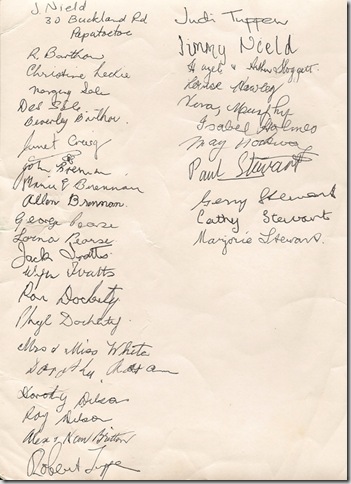 J. Nield
30 Buckland Rd
Papatoetoe
R. Barthow
Christine Leckie
Des
Beverly
Janet Craig
John Brennan
E Brennan
Allan Brennan.
George Pearse
Lorna Pearse
Jack Ivatts
Wyn Ivatts
Ron Docherty
Phyl Docherty.
Mrs & Miss White
Dorothy
Dorothy Dilson
Roy Dilson
Alex & Nan Britton
Robert
Judi Tuppen
Jimmy Nield
Hazel & Arthur Hoggett.
Louise Hawley
Nora, Murphy
Isabel Holmes
May
Paul Stewart
Gerry Stewart
Cathy Stewart
Marjorie Stewart.